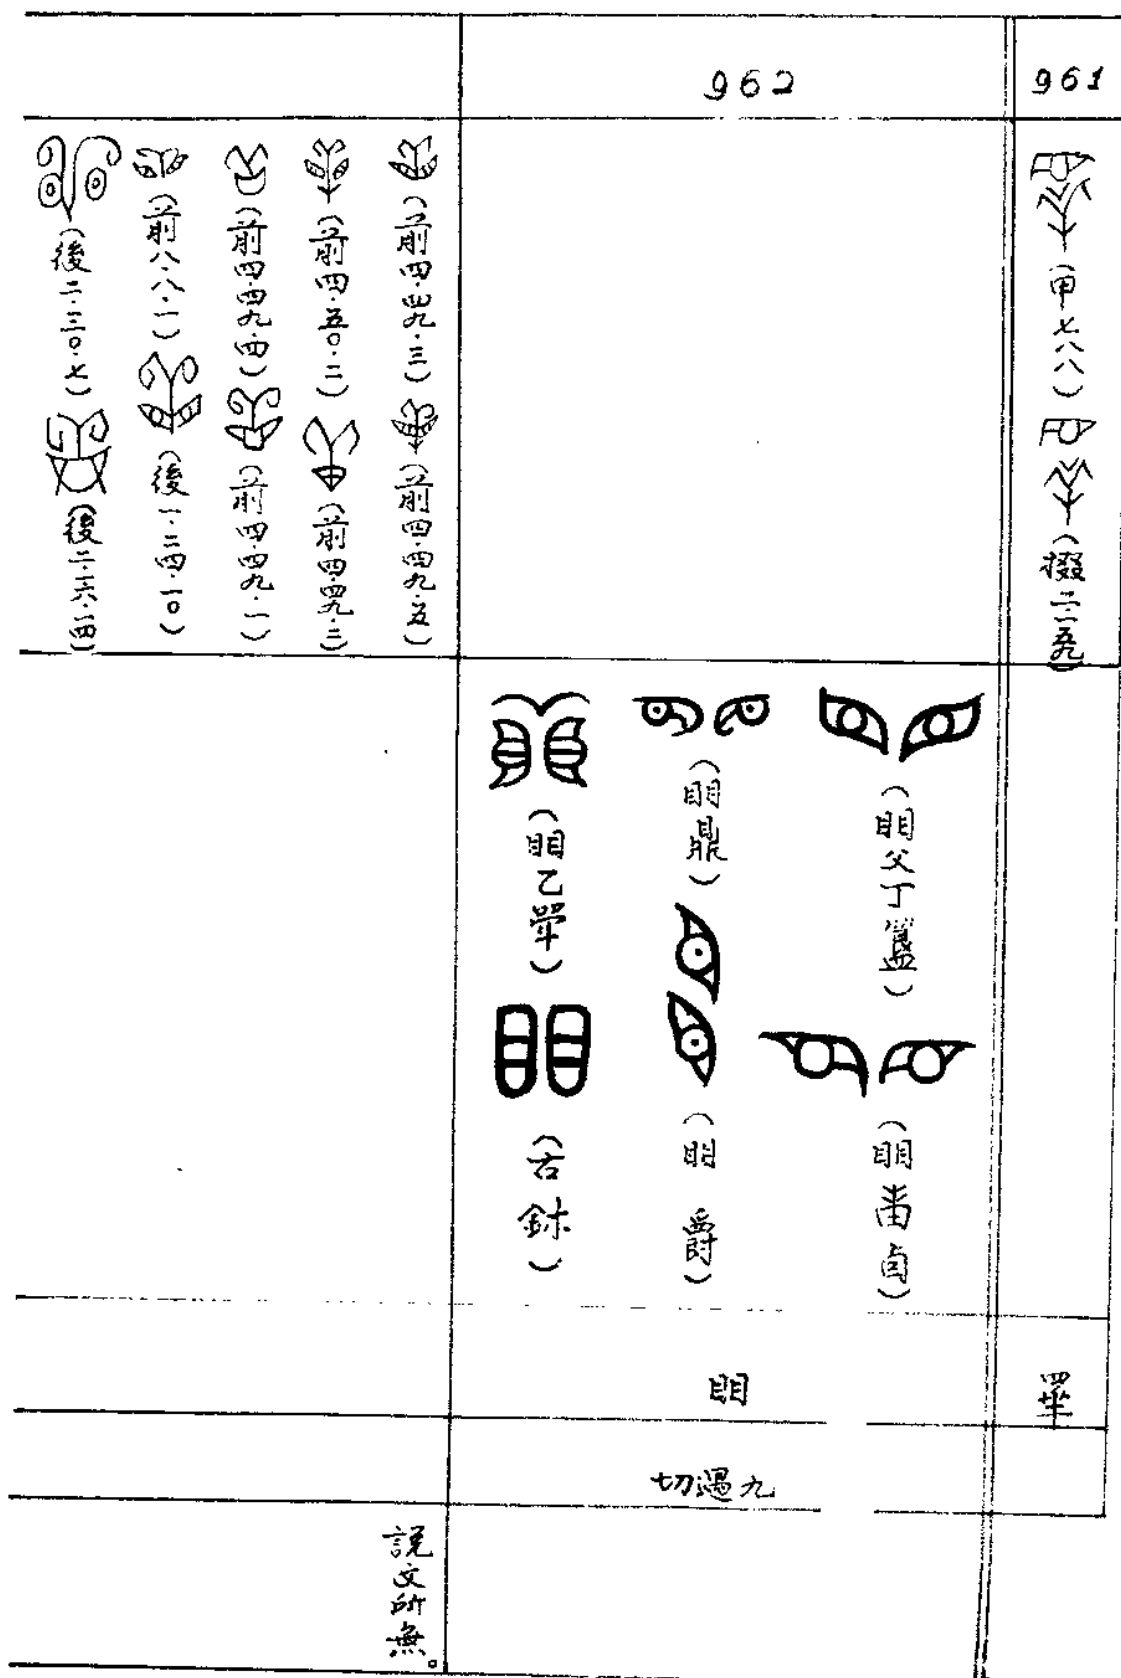 961
(甲七八八)
(掇二·一五九)
962
(䀠父丁簋)
(䀠𤲃卣)
(䀠鼎)
(䀠爵)
(䀠乙斝)
(古鉥)
䀠
九遇切
(前四·四九·三)
(前四·四九·五)
(前四·五〇·二)
(前四·四九·二)
(前四·四九·四)
(前四·四九·一)
(前八·八·一)
(後一·二四·一〇)
(後二·三〇·七)
(後二·六·一四)
說文所無。